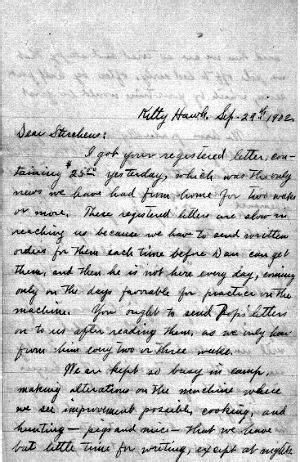 Kitty Hawk, Sep. 29th 1902
Dear Sterchens:
I got your registered letter, con-
taining $25.00 yesterday, which was the only
news we have had from home for two weeks
or more. These registered letters are slow in
reaching us because we have to send written
orders for them each time before Dan can get
them, and then he is not here every day, coming
only on the days favorable for practice on the
machine. You ought to send Pop's letters
on to us after reading them, as we only hear
from him every two or three weeks.
We are kept so busy in camp,
making alterations on the machine where
we see improvement possible, cooking, and
hunting — pegs and mice — that we have
but little time for writing, except at nights